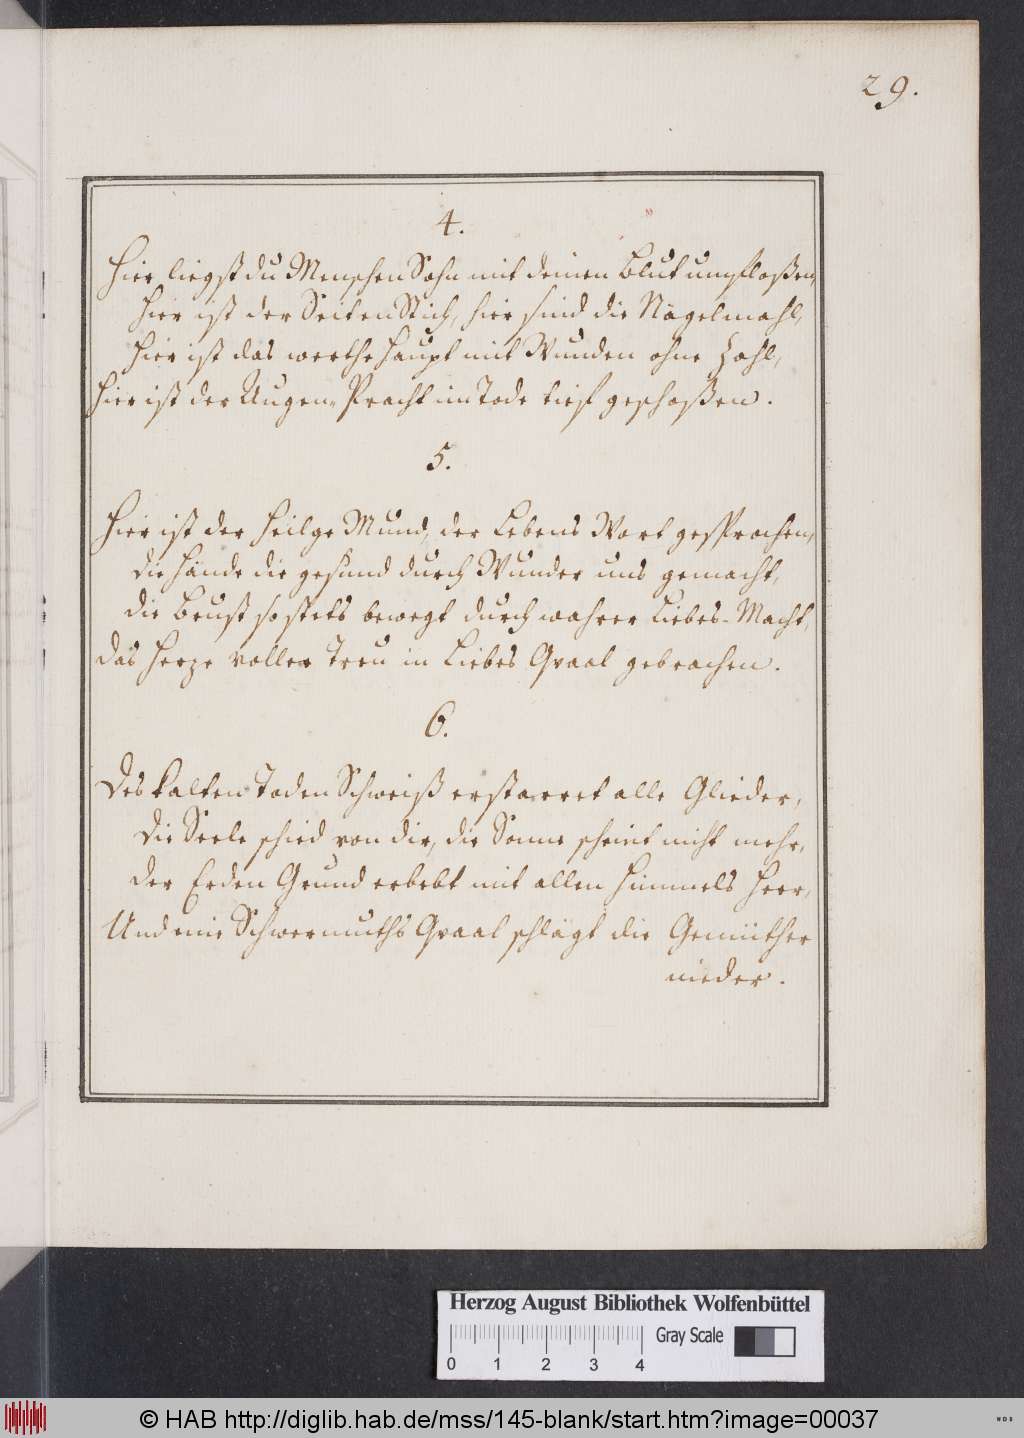 29.
4.
Hier liegst du MenschenSohn mit deinen Blut umfloßen,
Hier ist der SeitenStich, hier sind die Nägelmahl,
Hier ist das werthe Haupt mit Wunden ohne Zahl,
Hier ist der Augen-Pracht im Tode tief geschoßen.
5.
Hier ist der Heilge Mund, der Lebens Wort gesprochen,
Die Hände die gesund durch Wunder uns gemacht,
Die Brust so stets bewegt durch wahrer Liebes-Macht,
Das Herze voller Treu in Liebes Qvaal gebrochen.
6.
Des kalten Toden Schweiß erstarret alle Glieder,
Die Seele schied von dir, die Sonne scheint nicht mehr,
Der Erden Grund erbebt mit allen Himmels Heer,
Und eine Schwermuths Qvaal schlägt die Gemüther
nieder.
Herzog August Bibliothek Wolfenbüttel
Gray Scale
0 1 2 3 4
© HAB http://diglib.hab.de/mss/145-blank/start.htm?image=00037